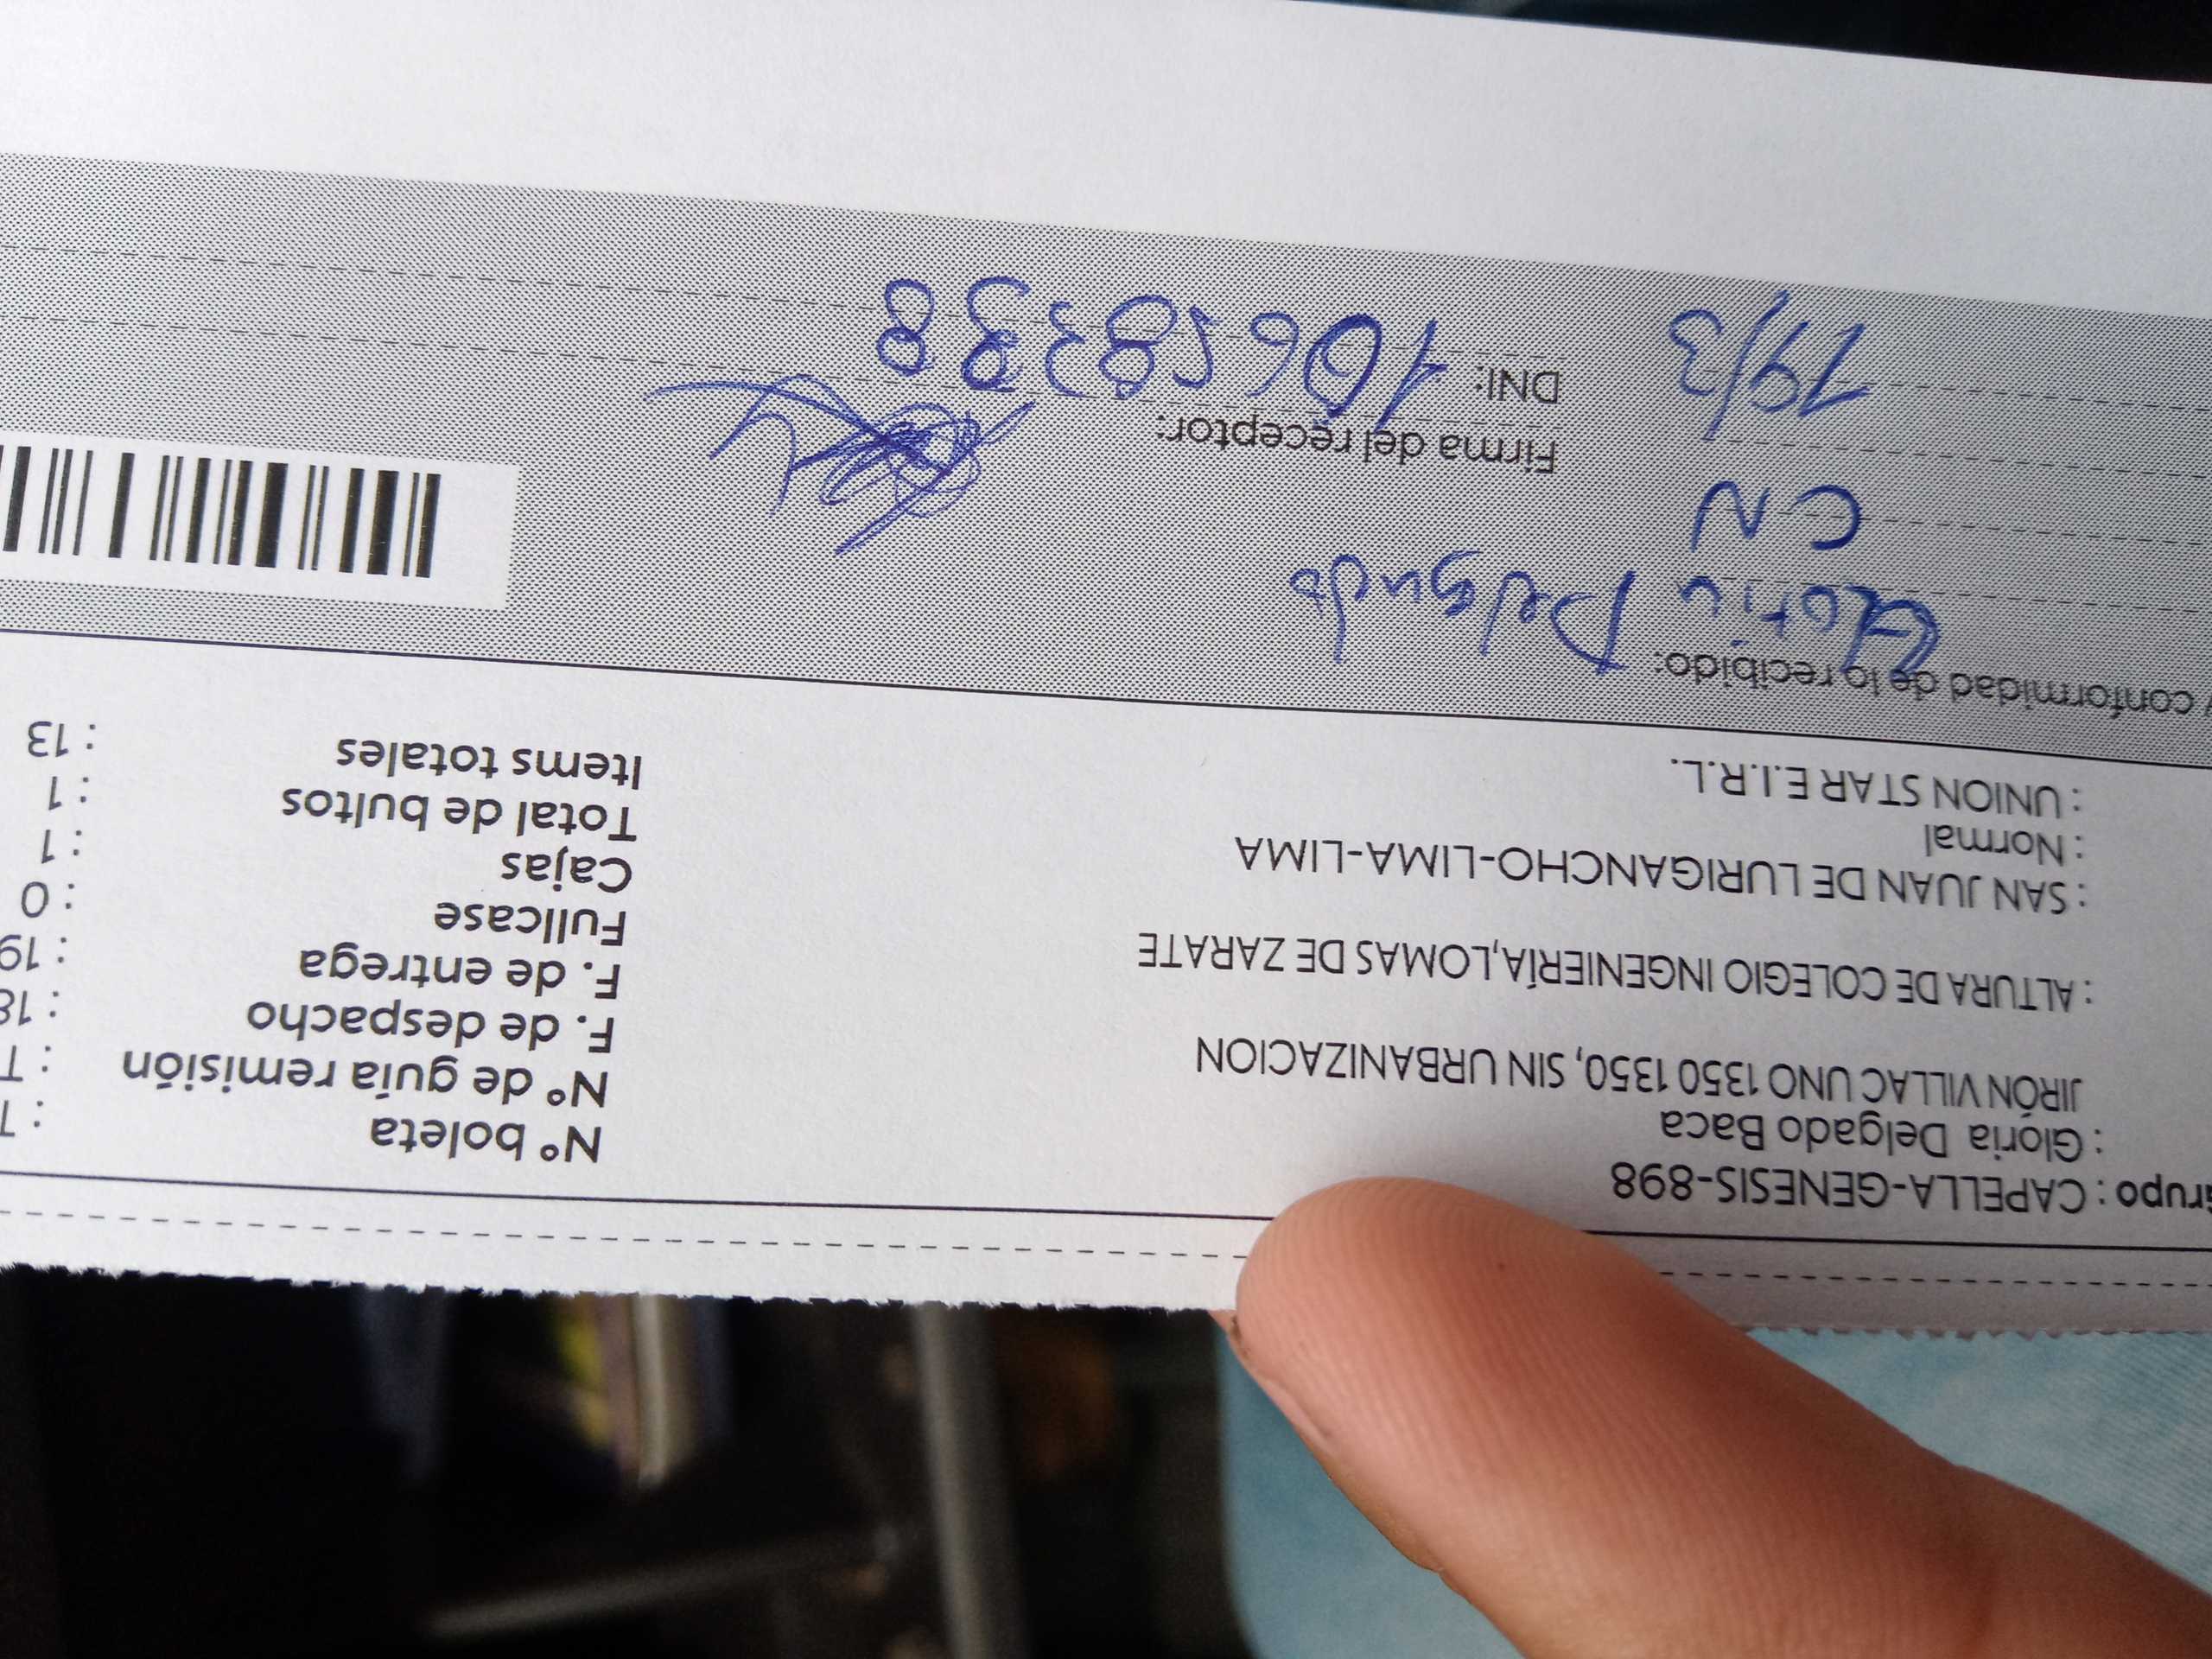 Grupo : CAPELLA-GENESIS-898
: Gloria Delgado Baca
JIRÓN VILLAC UNO 1350 1350, SIN URBANIZACION
: ALTURA DE COLEGIO INGENIERÍA,LOMAS DE ZARATE
: SAN JUAN DE LURIGANCHO-LIMA-LIMA
: Normal
: UNION STAR E.I.R.L.
N° boleta :
N° de guía remisión : T
F. de despacho : 18
F. de entrega : 19
Fullcase : 0
Cajas : 1
Total de bultos : 1
Items totales : 13
conformidad de lo recibido:
Gloria Delgado
CN
19/3
Firma del receptor:
DNI: 10658338